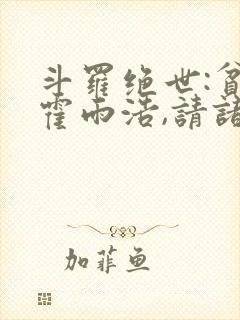 斗罗绝世:貧
霍雨浩,請諸
加菲鱼